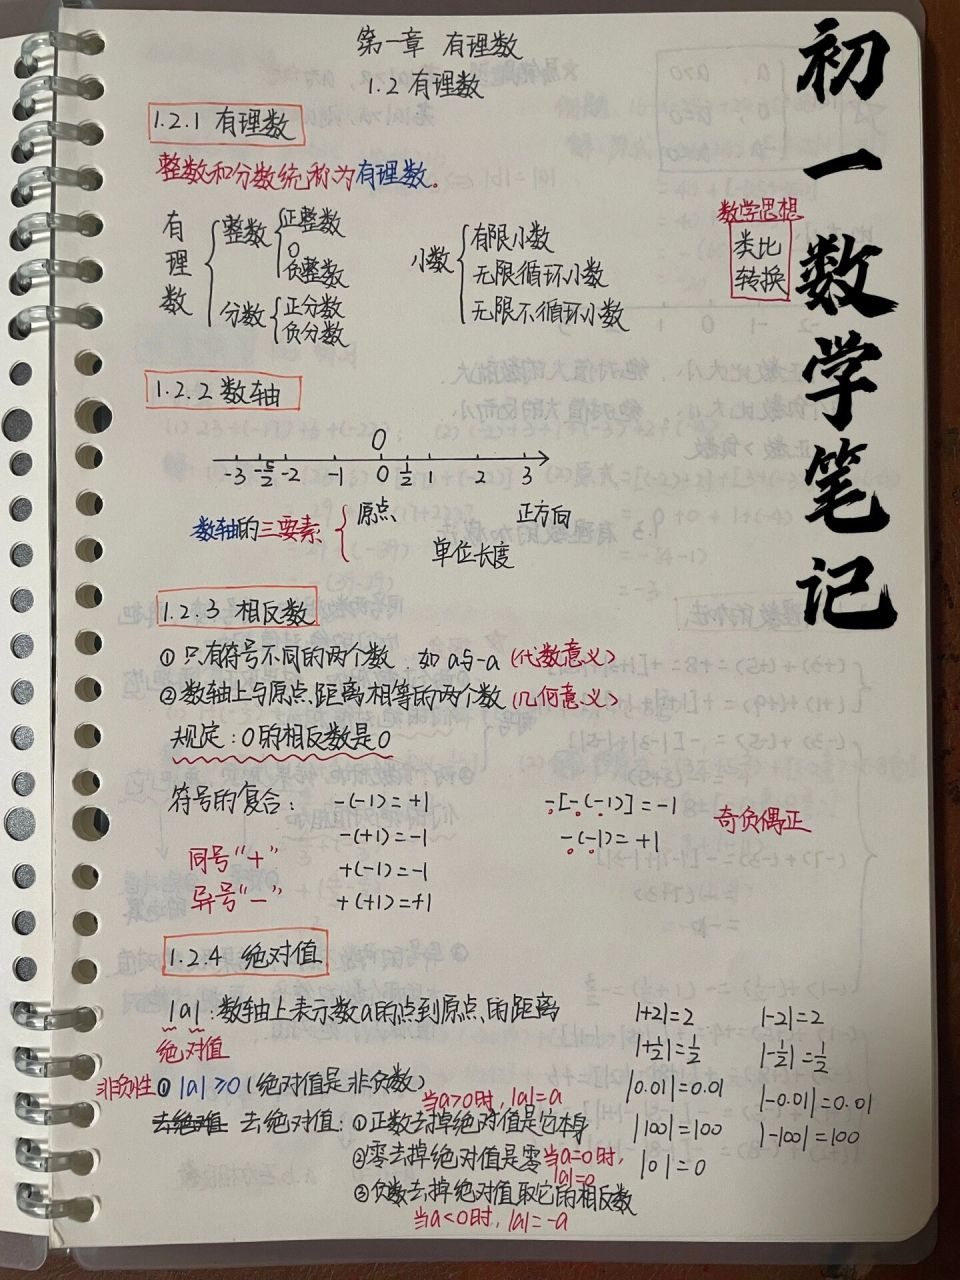 初一数学笔记
第一章 有理数
1.2 有理数
1.2.1 有理数
整数和分数统称为有理数。
数学思想
类比
转换
有理数
整数
正整数
0
负整数
分数
正分数
负分数
小数
有限小数
无限循环小数
无限不循环小数
1.2.2 数轴
0
-3 -5/2 -2 -1 0 1/2 1 2 3
数轴的三要素:
原点
正方向
单位长度
1.2.3 相反数
① 只有符号不同的两个数,如 a与-a (代数意义)
②数轴上与原点距离相等的两个数 (几何意义)
规定:0的相反数是0
符号的复合: -(-1)=+1
-(+1)=-1
+(-1)=-1
+(+1)=+1
同号"+"
异号"-"
-[-(-1)]=-1
-(-1)=+1
奇负偶正
1.2.4 绝对值
|a|:数轴上表示数a的点到原点的距离
绝对值
非负性 ① |a|≥0 (绝对值是非负数)
去绝对值 去绝对值:①正数去掉绝对值是它本身
当a>0时,|a|=a
②零去掉绝对值是零
当a=0时,
|a|=0
③负数去掉绝对值取它的相反数
当a<0时,|a|=-a
|+2|=2 |-2|=2
|+1/2|=1/2 |-1/2|=1/2
|0.01|=0.01 |-0.01|=0.01
|100|=100 |-100|=100
|0|=0